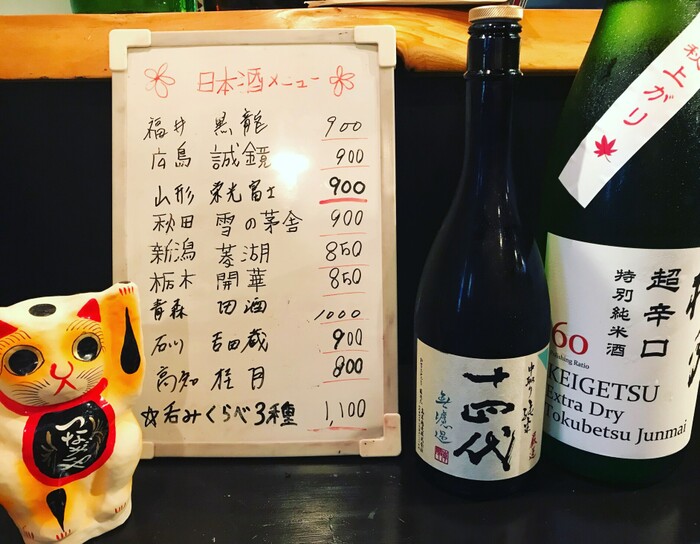 日本酒メニュー
福井 黒龍 900
広島 誠鏡 900
山形 栄光冨士 900
秋田 雪の茅舎 900
新潟 菱湖 850
栃木 開華 850
青森 田酒 1000
石川 吉田蔵 900
高知 桂月 800
☆呑みくらべ3種 1,100
十四代
無濾過
秋上がり
超辛口
特別純米酒
60
Polishing Ratio
KEIGETSU
Extra Dry
Tokubetsu Junmai